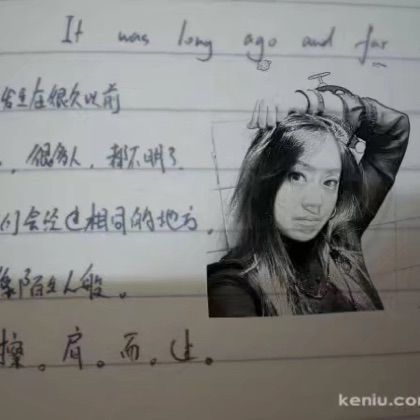 It was long ago and far
生在很久以前
，很多人，都不明了
们会经过相同的地方，
像陌生人般。
擦。肩。而。过。
keniu.co